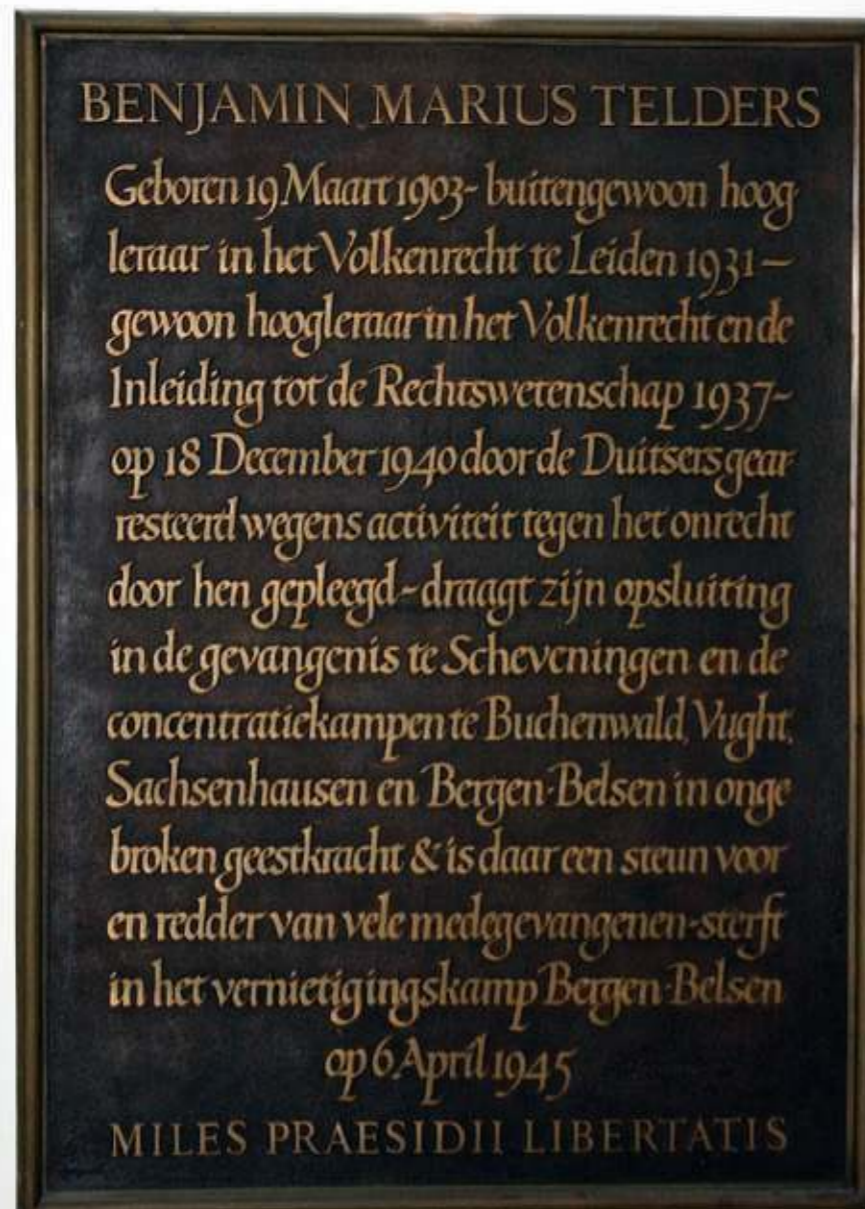 BENJAMIN MARIUS TELDERS
Geboren 19 Maart 1903- buitengewoon hoog-
leraar in het Volkenrecht te Leiden 1931–
gewoon hoogleraar in het Volkenrecht en de
Inleiding tot de Rechtswetenschap 1937-
op 18 December 1940 door de Duitsers gear-
resteerd wegens activiteit tegen het onrecht
door hen gepleegd-draagt zijn opsluiting
in de gevangenis te Scheveningen en de
concentratiekampen te Buchenwald, Vught,
Sachsenhausen en Bergen-Belsen in onge
broken geestkracht & is daar een steun voor
en redder van vele medegevangenen-sterft
in het vernietigingskamp Bergen-Belsen
op 6 April 1945
MILES PRAESIDII LIBERTATIS